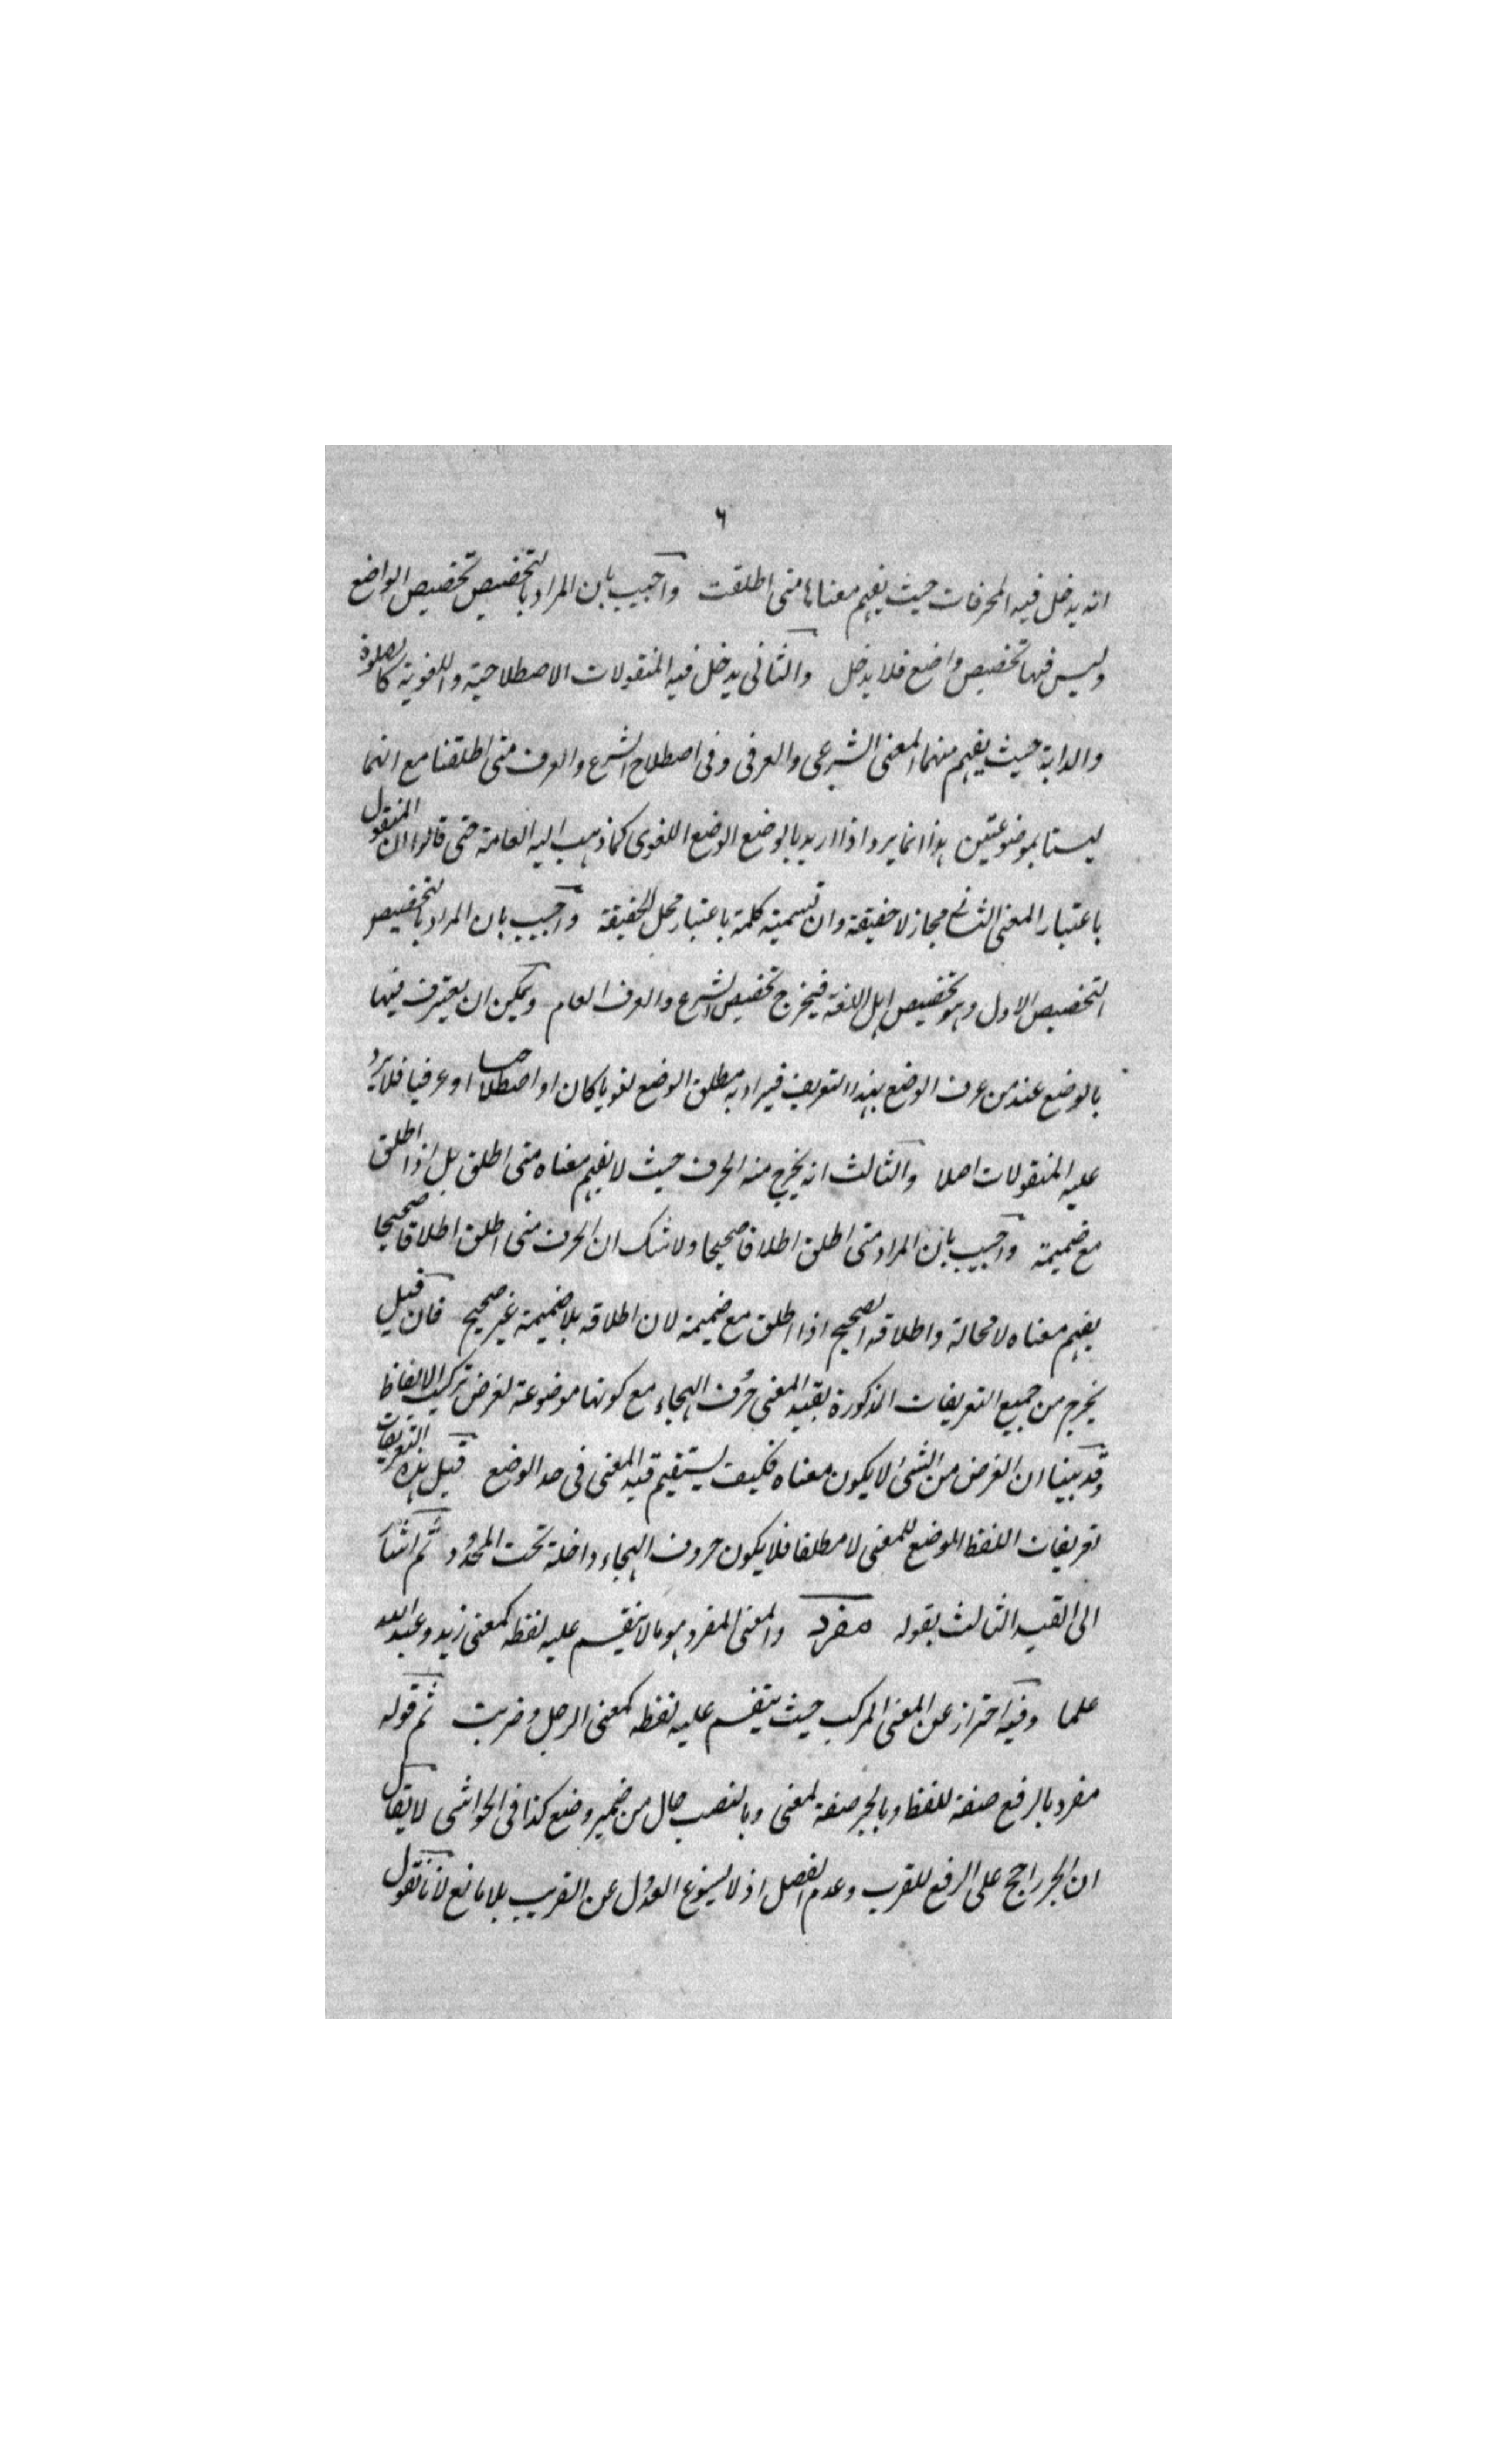 ٦
انه يدخل فيه المحرفات حيث يفهم معناها متى اطلقت واجيب بان المراد بالتخصيص تخصيص الواضع
وليس فيها تخصيص واضع فلا يدخل والثانى يدخل فيه المنقولات الاصطلاحية واللغوية كالصلوة
والدابة حيث يفهم منهما المعنى الشرعى والعرفى وفى اصطلاح الشرع والعرف متى اطلقنا مع انهما
ليستا بموضوعتين هذا انما يرد اذا اريد بالوضع الوضع اللغوى كما ذهب اليه العامة حتى قالوا ان المنقول
باعتبار المعنى الثانى مجاز لا حقيقة وان تسميته كلمة باعتبار محل الحقيقة واجيب بان المراد بالتخصيص
التخصيص الاول وهو تخصيص اهل اللغة فيخرج تخصيص الشرع والعرف العام ويمكن ان يعترف فيها
بالوضع عند من عرف الوضع بهذا التعريف فيراد به مطلق الوضع لغويا كان او اصطلاحيا او عرفيا فلا يرد
عليه المنقولات اصلا والثالث انه يخرج منه الحرف حيث لا يفهم معناه متى اطلق بل اذا اطلق
مع ضميمة واجيب بان المراد متى اطلق اطلاقا صحيحا ولا شك ان الحرف متى اطلق اطلاقا صحيحا
يفهم معناه لا محالة واطلاقه الصحيح اذا اطلق مع ضميمة لان اطلاقه بلا ضميمة غير صحيح فان قيل
يخرج من جميع التعريفات المذكورة بقيد المعنى حروف الهجاء مع كونها موضوعة لغرض تركيب الالفاظ
وقد بينا ان الغرض من الشى لا يكون معناه فكيف يستقيم قيد المعنى فى حد الوضع قيل هذه التعريفات
تعريفات اللفظ الموضع للمعنى لا مطلقا فلا يكون حروف الهجاء داخلة تحت المحدود ثم اشار
الى القيد الثالث بقوله مفرد والمعنى المفرد هو ما لا ينقسم عليه لفظه كمعنى زيد وعبد الله
علما وفيه احتراز عن المعنى المركب حيث ينقسم عليه لفظه كمعنى الرجل وضربت ثم قوله
مفرد بالرفع صفة للفظ وبالجر صفة لمعنى وبالنصب حال من ضمير وضع كذا فى الحواشى لا يقال
ان الجر راجح على الرفع للقرب وعدم الفصل اذ لا يسوغ العدول عن القريب بلا مانع لانا نقول